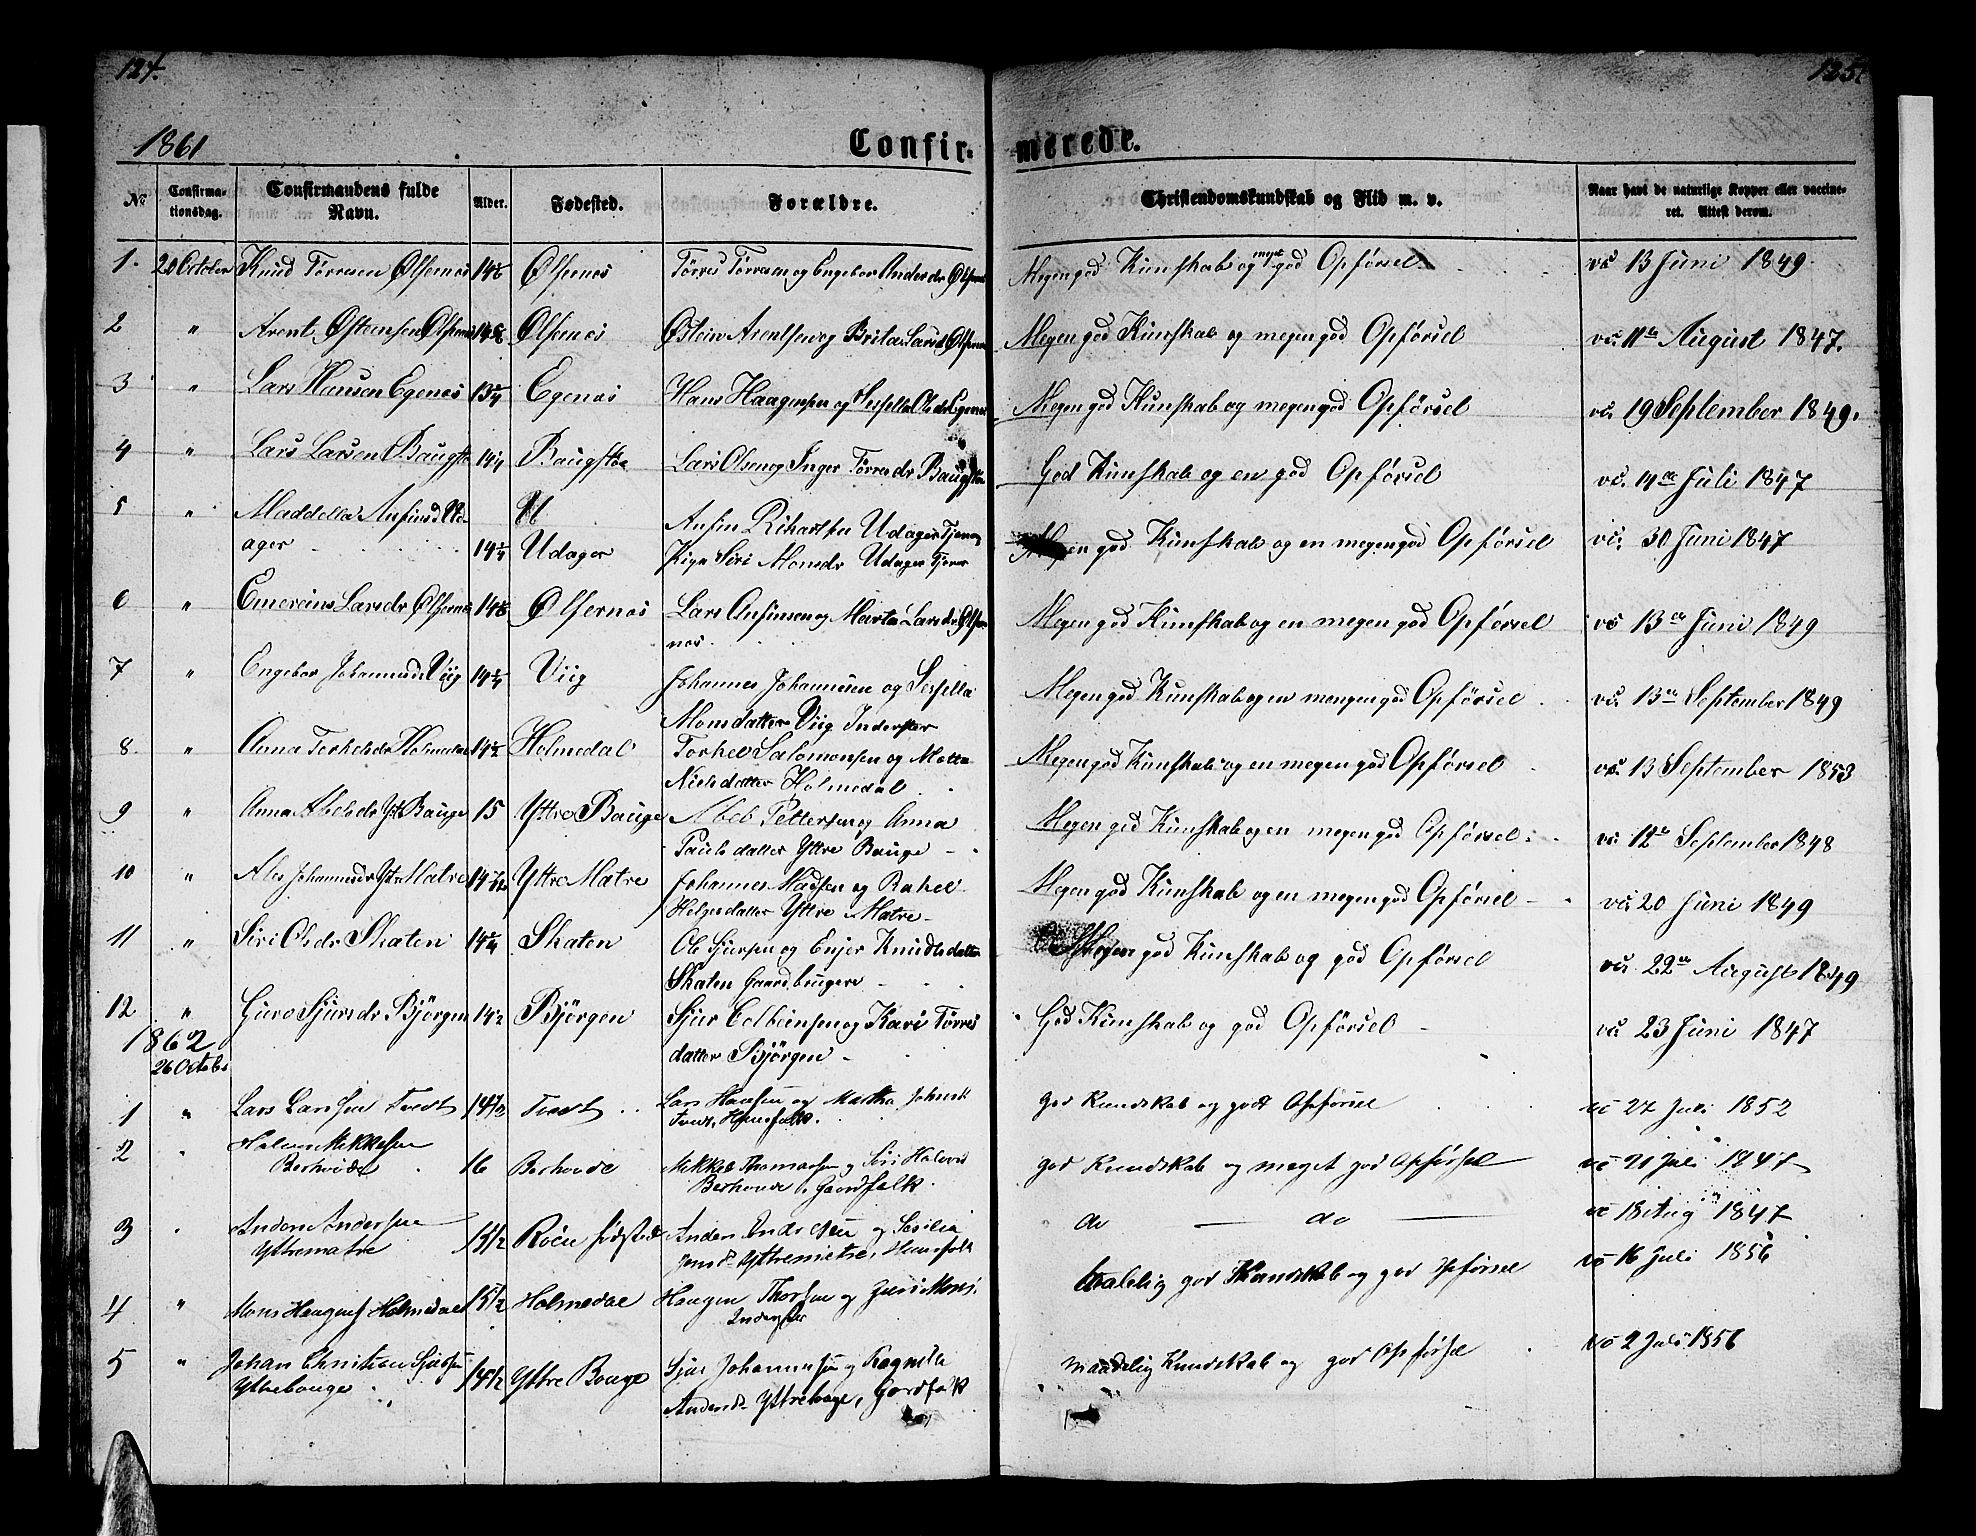 124.
125.
1861
Confir-
merede.
No
Confirma-
tionsdag.
Confirmandens fulde
Navn.
Alder.
Fødested.
Forældre.
Christendomskundskab og Flid m. v.
Naar havt de naturlige Kopper eller vaccine-
ret. Attest derom.
1. 20 October Knud Törresen Ølfernes Ølfernes Törres Törresen og Engebor Andersdr Ølfernes Megen god Kunskab og meget god Opførsel vc 13 Juni 1849.
2 " Arent Østensen Ølfernes Ølfernes Østein Arentsen og Brita Larsdr Ølfernes Megen god Kunskab og megen god Opførsel vc. 11te August 1847.
3 " Lars Hansen Egenes 13 3/4 Egenes Hans Haagensen og Sessella Olsdr Egenes Megen god Kunskab og megen god Opførsel vc. 19 September 1849.
4 " Lars Larsen Baugstø 14 1/4 Baugstøe Lars Olsen og Inger Törresdr Baugstøe God Kunskab og en god Opførsel vc. 14de Juli 1847
5 " Maddella Anfinsd Ud- U Anfin Rikartsen Udager Tjener
ager 14 1/4 Udager Pige Siri Monsdr Udager Megen god Kunskab og en megen god Opførsel vc. 30 Juni 1847
6 " Emerens Larsdr Ølfernes Ølfernes Lars Anfinsen og Marta Larsdr Ølfer-
nes. Megen god Kunskab og en megen god Opførsel vc 13de Juni 1849
7 " Engebor Johannesdr Viig 14 1/4 Viig Johannes Johannesen og Sessella
Monsdatter Viig Inderster Megen god Kunskab og en mengen god Opførsel vc. 13de September 1849
8. " Anna Torkelsdr Holmedal 14 1/2 Holmedal Torkel Salomonsen og Metta
Nielsdatter Holmedal Megen god Kunskab og en megen god Opførsel vc. 13 September 1853
9 " Anna Abelsdr Yt Bauge 15 Yttre Bauge Abel Pettersen og Anna
Paulsdatter Yttre Bauge Megen god Kunskab og en megen god Opførsel vc 12te September 1848
10 " Ales Johannesdr Ytr Matre Yttre Matre Johannes Madsen og Rakel
Helgesdatter Yttre Matre Megen god Kunskab og en megen god Opførsel vc. 20 Juni 1849
11 " Siri Olsdr Skaten 14 1/4 Skaten Ole Sjursen og Enjer Knudtsdatter
Skaten Gaardbrugere Megen god Kunskab og god Opførsel vc. 22de August 1849
12 " Guro Sjursdr Bjørgen 14 1/2 Bjørgen Sjur og Kari Törres
datter Bjørgen God Kunskab og god Opførsel vc. 23 Juni 1847
1862
26 October
1 " Lars Larssen Tvedt 14 1/2 Tvedt Lars Hansen og Martha
Tvedt, Huusfolk. god Kundskab og godt Opførsel vc 27 Juli 1852
2 " Halvor Mikkelsen
Berhovde 16 Berhovde Mikkel Thomassen og Siri Halvors
Berhovde, Gaardfolk. god Kundskab og meget god Opførsel vc 21 Juli 1847
3 " Anders Andersen
Yttrematre 15 1/2 Røen fødested Anders Andersen og Sesilia
Jensd Yttrematre, Huusfolk do — do — vc 18 Aug 1847
4 " Mons Haagens Holmedal 15 1/2 Holmedal Haagen Thorsen og Guri Mons.
Inderster maadelig god Kundskab og god Opførsel vc 16 Juli 1856
5 " Johan Christian Sjursen
Yttrebouge 14 1/2 Yttre Bouge Sjur Johannessen og Ragnilla
Andersd Yttrebouge, Gardfolk maadelig Kundskab og god Opførsel vc 2 Juli 1856